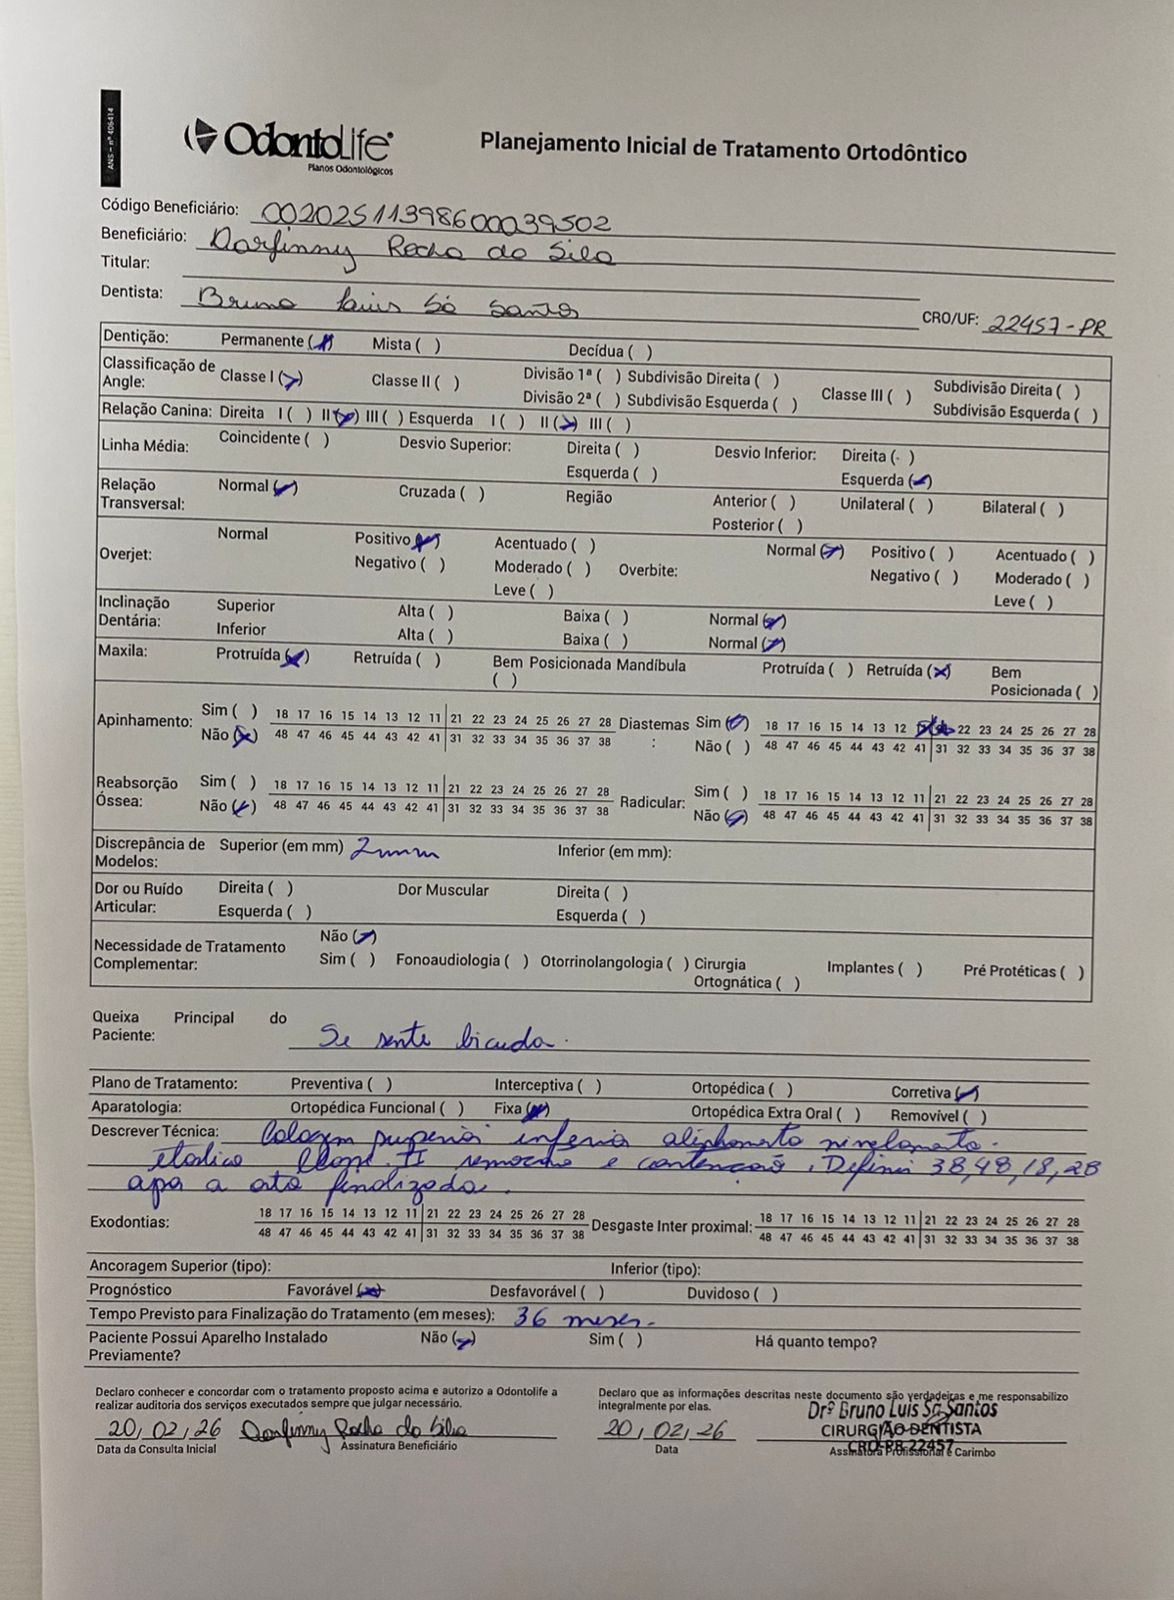 ANS - nº 406414
OdontoLife®
Planos Odontológicos
Planejamento Inicial de Tratamento Ortodôntico
Código Beneficiário: 00202511398600039502
Beneficiário: Dorfinny Rocha da Silva
Titular:
Dentista: Bruno Luis Sá Santos CRO/UF: 22457-PR
Dentição: Permanente (x) Mista ( ) Decídua ( )
Classificação de Angle: Classe I (x) Classe II ( ) Divisão 1ª ( ) Subdivisão Direita ( ) Classe III ( ) Subdivisão Direita ( )
Divisão 2ª ( ) Subdivisão Esquerda ( ) Subdivisão Esquerda ( )
Relação Canina: Direita I ( ) II (x) III ( ) Esquerda I ( ) II (x) III ( )
Linha Média: Coincidente ( ) Desvio Superior: Direita ( ) Desvio Inferior: Direita ( )
Esquerda ( ) Esquerda (x)
Relação Transversal: Normal (x) Cruzada ( ) Região Anterior ( ) Unilateral ( ) Bilateral ( )
Posterior ( )
Overjet: Normal Positivo (x) Acentuado ( ) Overbite: Normal (x) Positivo ( ) Acentuado ( )
Negativo ( ) Moderado ( ) Negativo ( ) Moderado ( )
Leve ( ) Leve ( )
Inclinação Dentária: Superior Alta ( ) Baixa ( ) Normal (x)
Inferior Alta ( ) Baixa ( ) Normal (x)
Maxila: Protruída (x) Retruída ( ) Bem Posicionada ( ) Mandíbula Protruída ( ) Retruída (x) Bem Posicionada ( )
Apinhamento: Sim ( ) 18 17 16 15 14 13 12 11 21 22 23 24 25 26 27 28 Diastemas: Sim (x) 18 17 16 15 14 13 12 22 23 24 25 26 27 28
Não (x) 48 47 46 45 44 43 42 41 31 32 33 34 35 36 37 38 Não ( ) 48 47 46 45 44 43 42 41 31 32 33 34 35 36 37 38
Reabsorção Óssea: Sim ( ) 18 17 16 15 14 13 12 11 21 22 23 24 25 26 27 28 Radicular: Sim ( ) 18 17 16 15 14 13 12 11 21 22 23 24 25 26 27 28
Não (x) 48 47 46 45 44 43 42 41 31 32 33 34 35 36 37 38 Não (x) 48 47 46 45 44 43 42 41 31 32 33 34 35 36 37 38
Discrepância de Modelos: Superior (em mm) 2mm Inferior (em mm):
Dor ou Ruído Articular: Direita ( ) Dor Muscular Direita ( )
Esquerda ( ) Esquerda ( )
Necessidade de Tratamento Complementar: Não (x)
Sim ( ) Fonoaudiologia ( ) Otorrinolangologia ( ) Cirurgia Ortognática ( ) Implantes ( ) Pré Protéticas ( )
Queixa Principal do Paciente: Se sente bicuda.
Plano de Tratamento: Preventiva ( ) Interceptiva ( ) Ortopédica ( ) Corretiva (x)
Aparatologia: Ortopédica Funcional ( ) Fixa (x) Ortopédica Extra Oral ( ) Removível ( )
Descrever Técnica: Colagem superior inferior alinhamento nivelamento.
elástico Classe II remoção e contenção. Definir 38,48,18,28
após a ato finalizada.
Exodontias: 18 17 16 15 14 13 12 11 21 22 23 24 25 26 27 28 Desgaste Inter proximal: 18 17 16 15 14 13 12 11 21 22 23 24 25 26 27 28
48 47 46 45 44 43 42 41 31 32 33 34 35 36 37 38 48 47 46 45 44 43 42 41 31 32 33 34 35 36 37 38
Ancoragem Superior (tipo): Inferior (tipo):
Prognóstico Favorável (x) Desfavorável ( ) Duvidoso ( )
Tempo Previsto para Finalização do Tratamento (em meses): 36 meses.
Paciente Possui Aparelho Instalado Previamente? Não (x) Sim ( ) Há quanto tempo?
Declaro conhecer e concordar com o tratamento proposto acima e autorizo a Odontolife a
realizar auditoria dos serviços executados sempre que julgar necessário.
Declaro que as informações descritas neste documento são verdadeiras e me responsabilizo
integralmente por elas.
20, 02, 26 Dorfinny Rocha da Silva
Data da Consulta Inicial Assinatura Beneficiário
20, 02, 26
Data
Drº Bruno Luis Sá Santos
CIRURGIÃO-DENTISTA
CRO-PR 22457
Assinatura Profissional e Carimbo